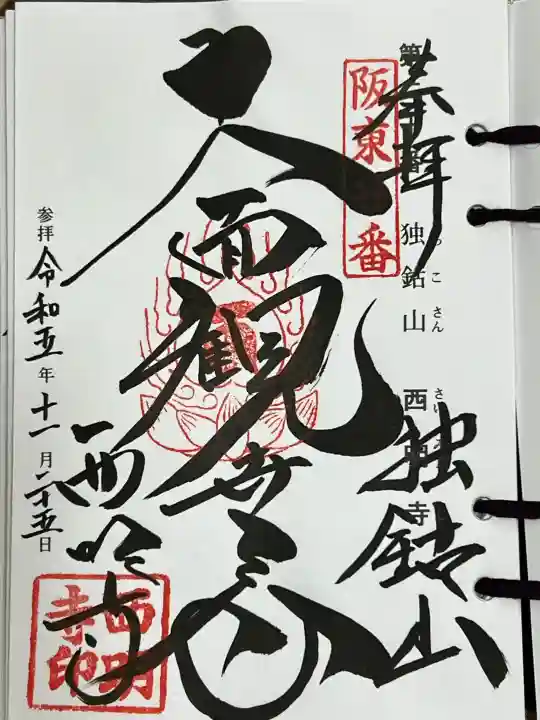 奉拝
独鈷山
第
番
独鈷山
っこ さん
西明寺
さい
阪東
番
大面観世音
西明寺
参拝 令和五年十一月二十五日
西明
寺印